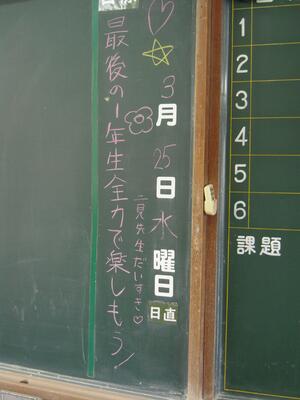 3月25日水曜日
日直
二見先生だいすき♡
最後の1年生全力で楽しもう!
1
2
3
4
5
6
課題